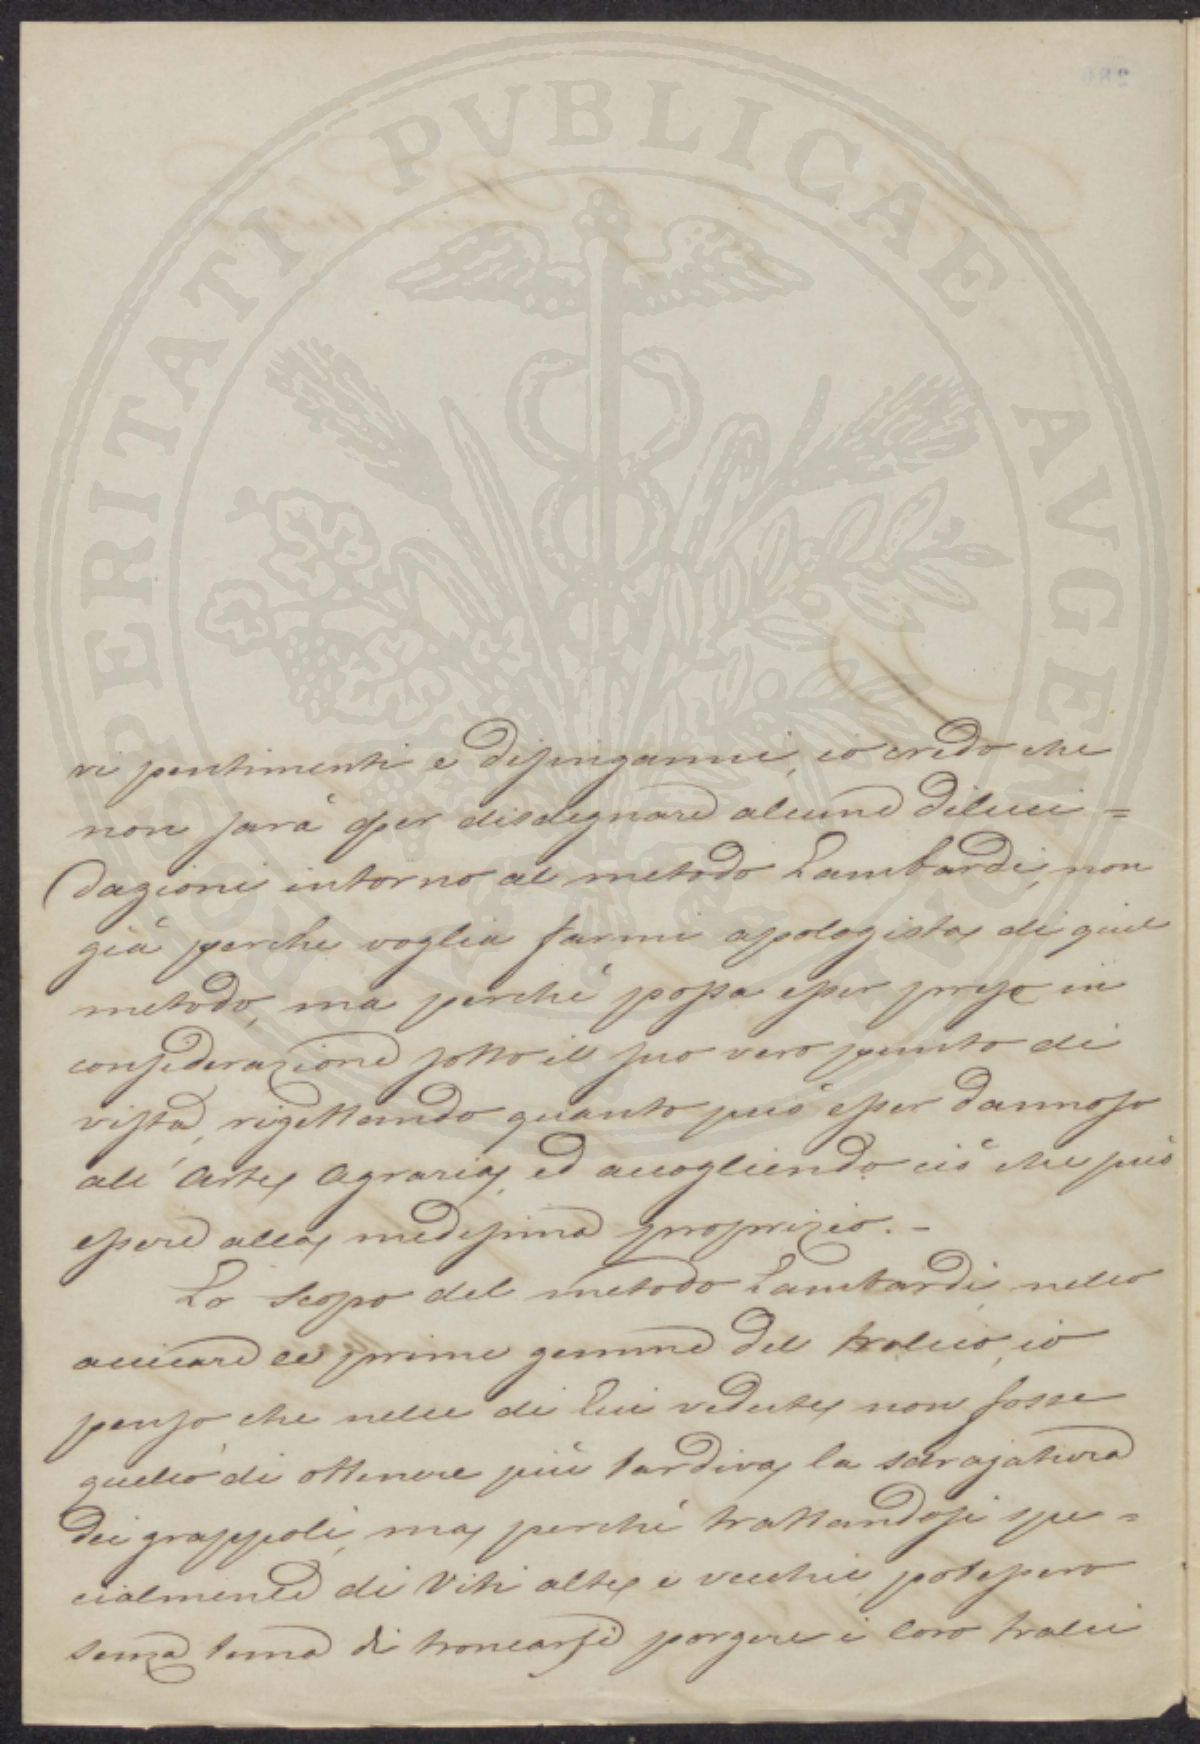 PROSPERITATI PVBLICAE AVGENDAE
vi pentimenti e disinganni, io credo che
non sarà per disdegnare alcune diluci=
dazioni intorno al metodo Lambardi, non
già perche voglia farmi apologista di quel
metodo, ma perchè possa esser preso in
considerazione sotto il suo vero punto di
vista, rigettando quanto può esser dannoso
all'Arte Agraria, ed accogliendo ciò che può
essere alla medesima proprizio. -
Lo scopo del metodo Lambardi, nello
accicare le prime gemme del tralcio, io
penso che nelle di lui vedute non fosse
quello di ottenere più tardiva la
dei grappoli, ma perchè trattandosi spe=
cialmente di Viti alte e vecchie, potessero
senza tema di troncarsi porgere i loro tralci